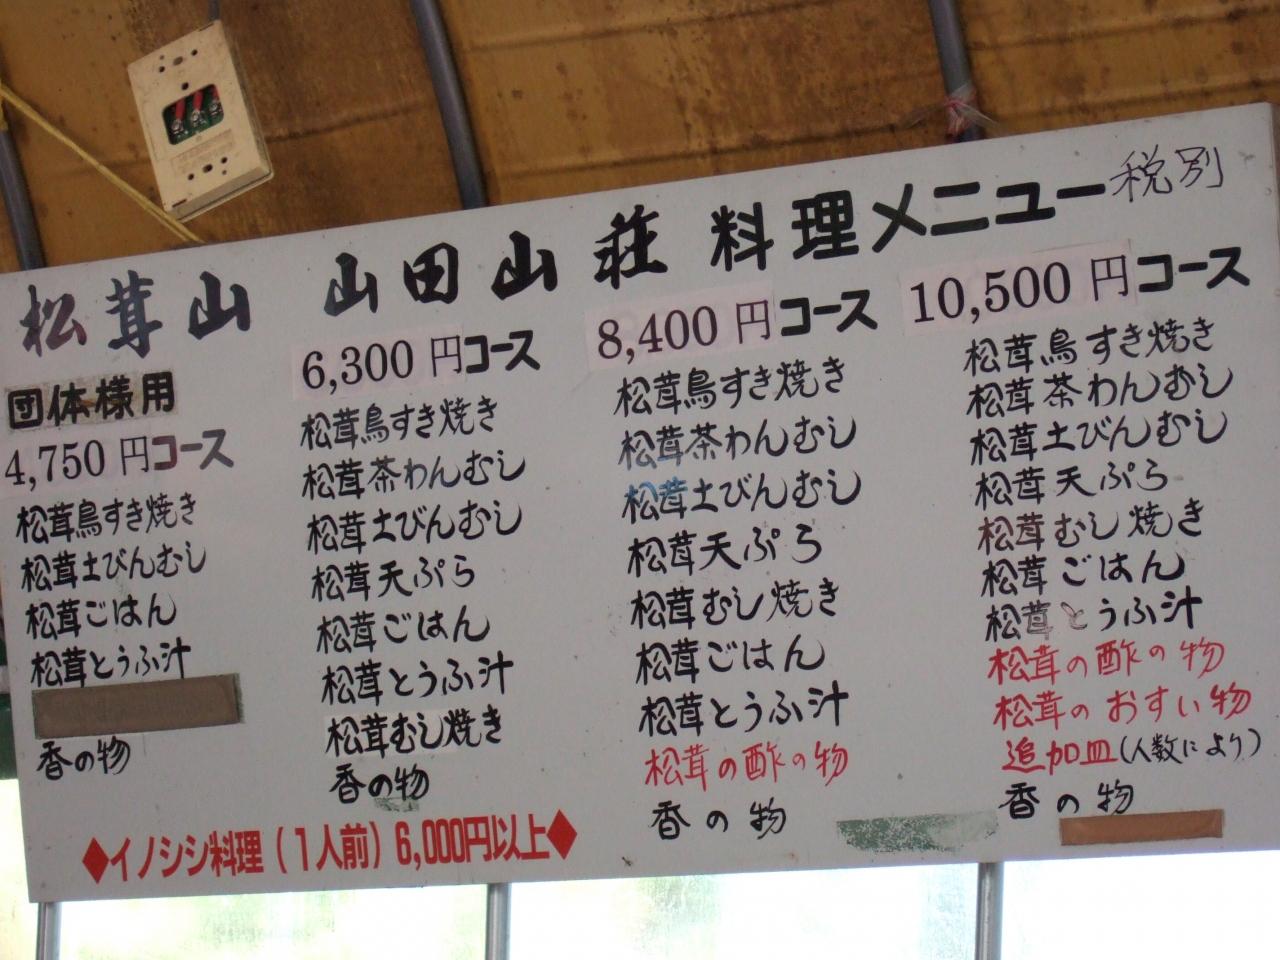 松茸山 山田山荘 料理メニュー 税別
団体様用
4,750 円コース
松茸鳥すき焼き
松茸土びんむし
松茸ごはん
松茸とうふ汁
香の物
6,300 円コース
松茸鳥すき焼き
松茸茶わんむし
松茸土びんむし
松茸天ぷら
松茸ごはん
松茸とうふ汁
松茸むし焼き
香の物
8,400 円コース
松茸鳥すき焼き
松茸茶わんむし
松茸土びんむし
松茸天ぷら
松茸むし焼き
松茸ごはん
松茸とうふ汁
松茸の酢の物
香の物
10,500 円コース
松茸鳥すき焼き
松茸茶わんむし
松茸土びんむし
松茸天ぷら
松茸むし焼き
松茸ごはん
松茸とうふ汁
松茸の酢の物
松茸のおすい物
追加皿(人数により)
香の物
◆イノシシ料理(1人前)6,000円以上◆